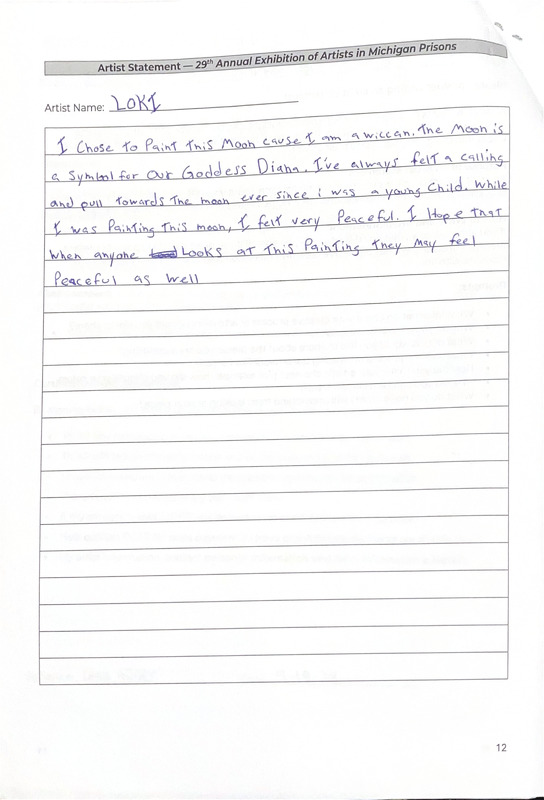 Artist Statement — 29th Annual Exhibition of Artists in Michigan Prisons
Artist Name: LOKI
I Chose to Paint This Moon cause I am a wiccan. The Moon is
a Symbol for our Goddess Diana. I've always felt a calling
and pull towards The moon ever since i was a young Child. While
I was Painting This moon, I felt very Peaceful. I Hope that
when anyone Looks at This Painting they may feel
Peaceful as well
12